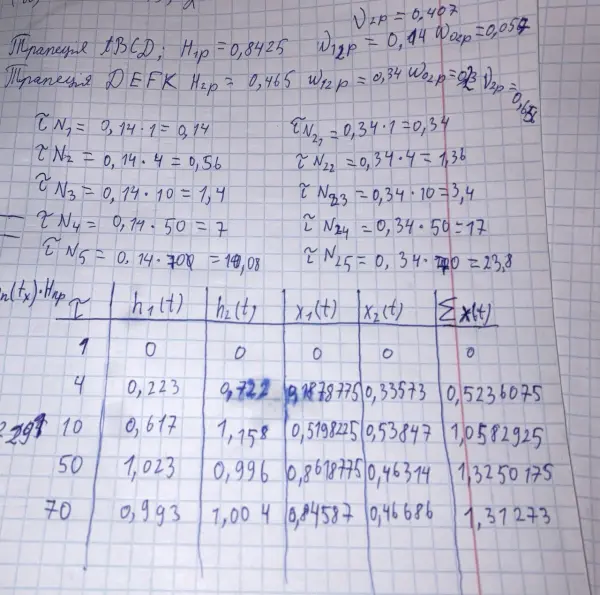 ν2p = 0,407
Трапеция ABCD; H1p = 0,8425 ω12p = 0,14 ω02p = 0,057
Трапеция DEFK H2p = 0,465 ω12p = 0,34
τN1 = 0,14·1 = 0,14 τN21 = 0,34·1 = 0,34
τN2 = 0,14·4 = 0,56 τN22 = 0,34·4 = 1,36
τN3 = 0,14·10 = 1,4 τN23 = 0,34·10 = 3,4
τN4 = 0,14·50 = 7 τN24 = 0,34·50 = 17
τN5 = 0,14· τN25 = 0,34· = 23,8
n(tx)·Hпр
τ h1(t) h2(t) x1(t) x2(t) Σx(t)
1 0 0 0 0 0
4 0,223 0,722 0,1878775 0,33573 0,5236075
10 0,617 1,158 0,5198225 0,53847 1,0582925
50 1,023 0,996 0,8618775 0,46314 1,3250175
70 0,993 1,004 0,84587 0,46686 1,31273